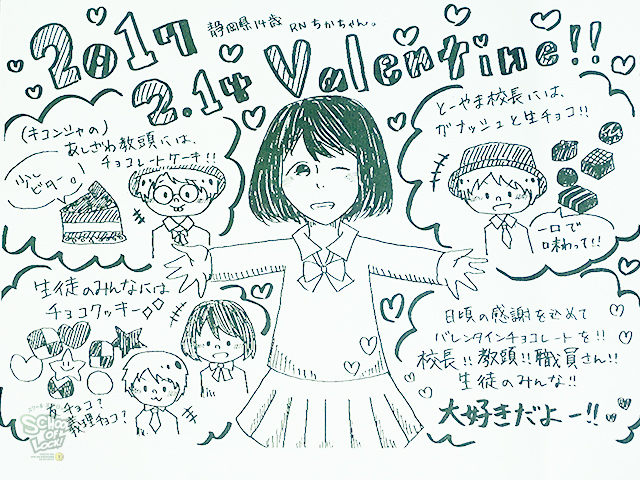 2017
静岡県14歳
RN ちかちゃん。
2.14 Valentine!!
(キコンジャの)
あしざわ教頭には、
チョコレートケーキ!!
少しビター。
とーやま校長には、
ガナッシュと生チョコ!!
一口で
味わって!!
生徒のみんなには
チョコクッキー◇◇
友チョコ?
義理チョコ?
日頃の感謝を込めて
バレンタインチョコレートを!!
校長!!教頭!!職員さん!!
生徒のみんな!!
大好きだよー!!
SCHOOL
OF
LOCK!